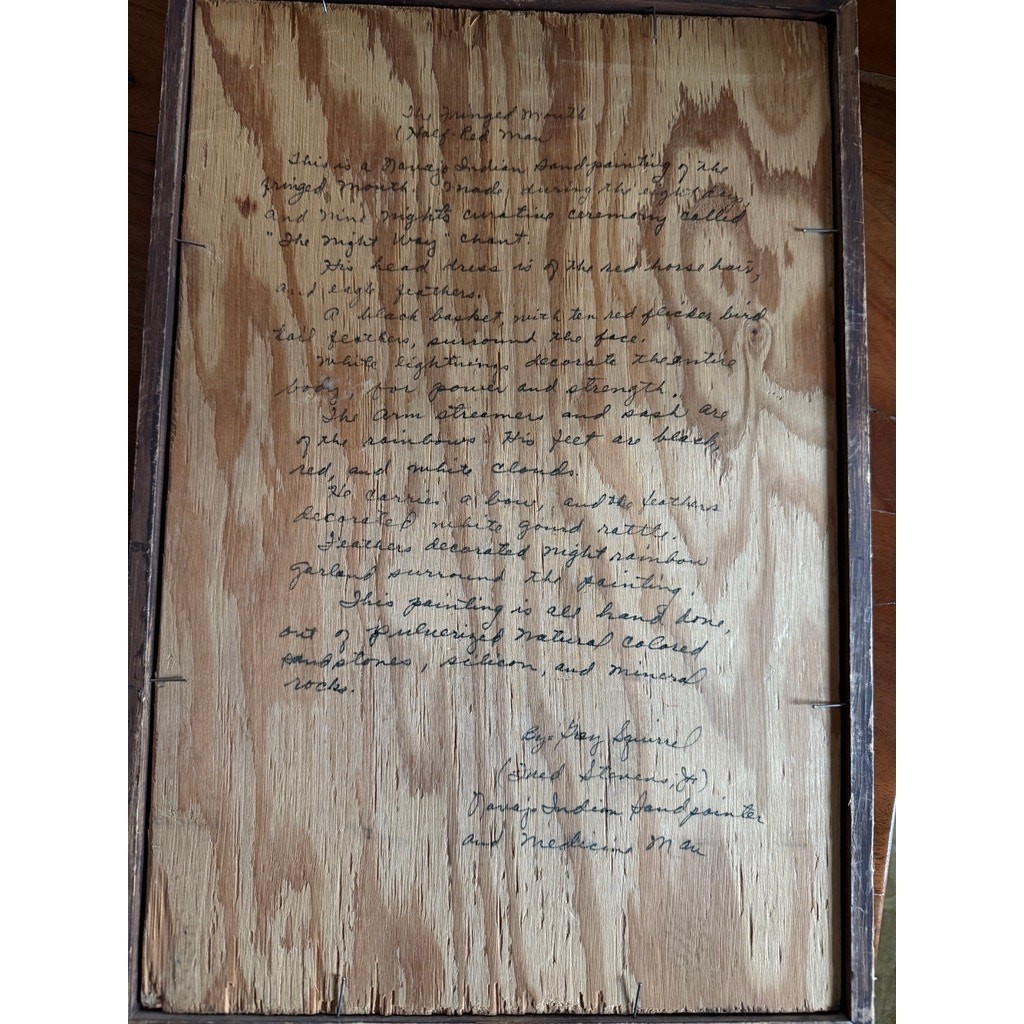 The Fringed Mouth
(Half-Red Man
This is a Navajo Indian Sandpainting of the
fringed Mouth. Made during the eight days,
and nine nights curative ceremony called
"The Night Way" chant.
His head dress is of the red horse hair,
and eagle feathers.
A black basket, with ten red flicker bird
tail feathers, surround the face.
White lightnings decorate the entire
body, for power and strength.
The arm streamers and sash are
of the rainbows. His feet are black,
red, and white clouds.
He carries a bow, and the feathers
decorated white gourd rattle.
Feathers decorated night rainbow
garland surround the painting.
This painting is all hand done,
out of pulverized natural colored
sandstones, silicon, and mineral
rocks.
By: Gray Squirrel
(Fred Stevens, Jr)
Navajo Indian Sandpainter
and Medicine Man